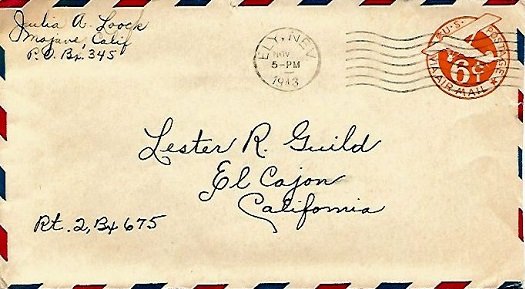 Julia A. Loock
Mojave, Calif
P.O. Bx. 345
ELY, NEV.
NOV
5-PM
1943
U.S. POSTAGE
6¢
VIA AIR MAIL
Lester R. Guild
El Cajon
California
Rt. 2, Bx 675